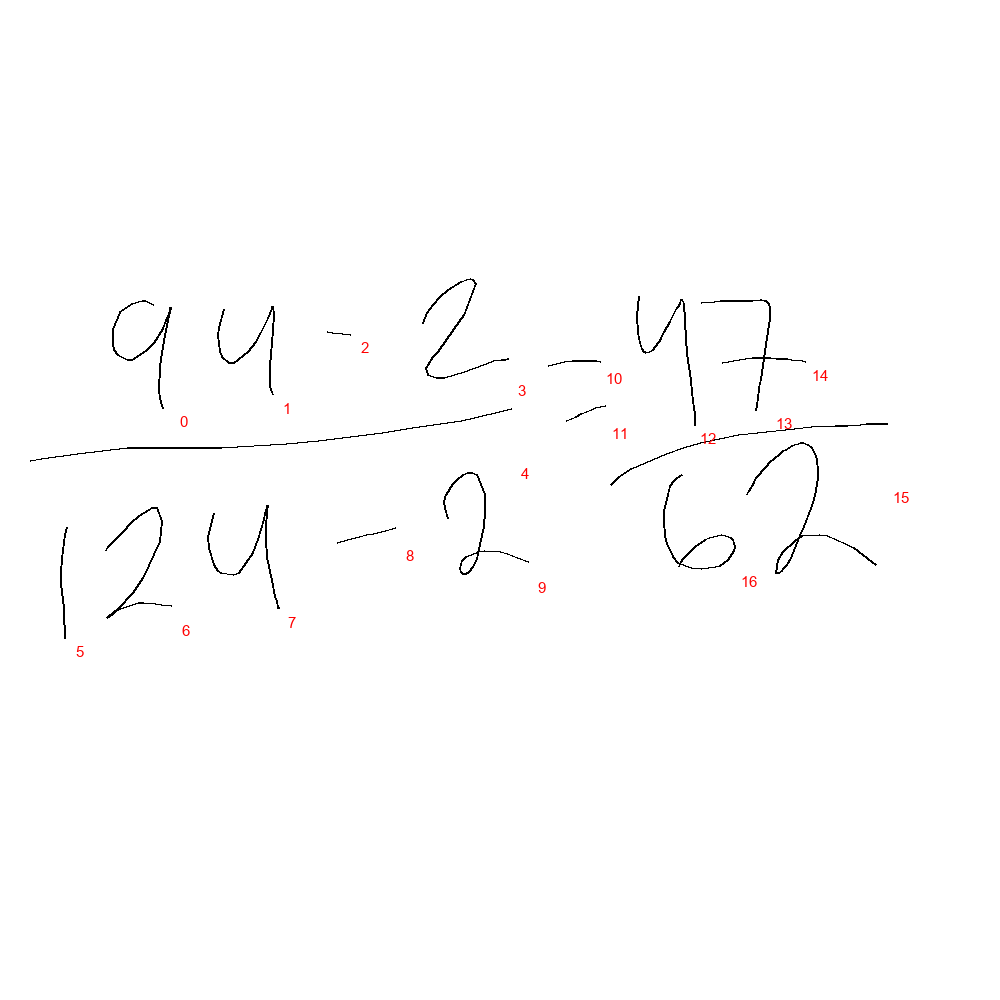 94 - 2 = 47
124 - 2 62
0 1 2 3 4 5 6 7 8 9 10 11 12 13 14 15 16